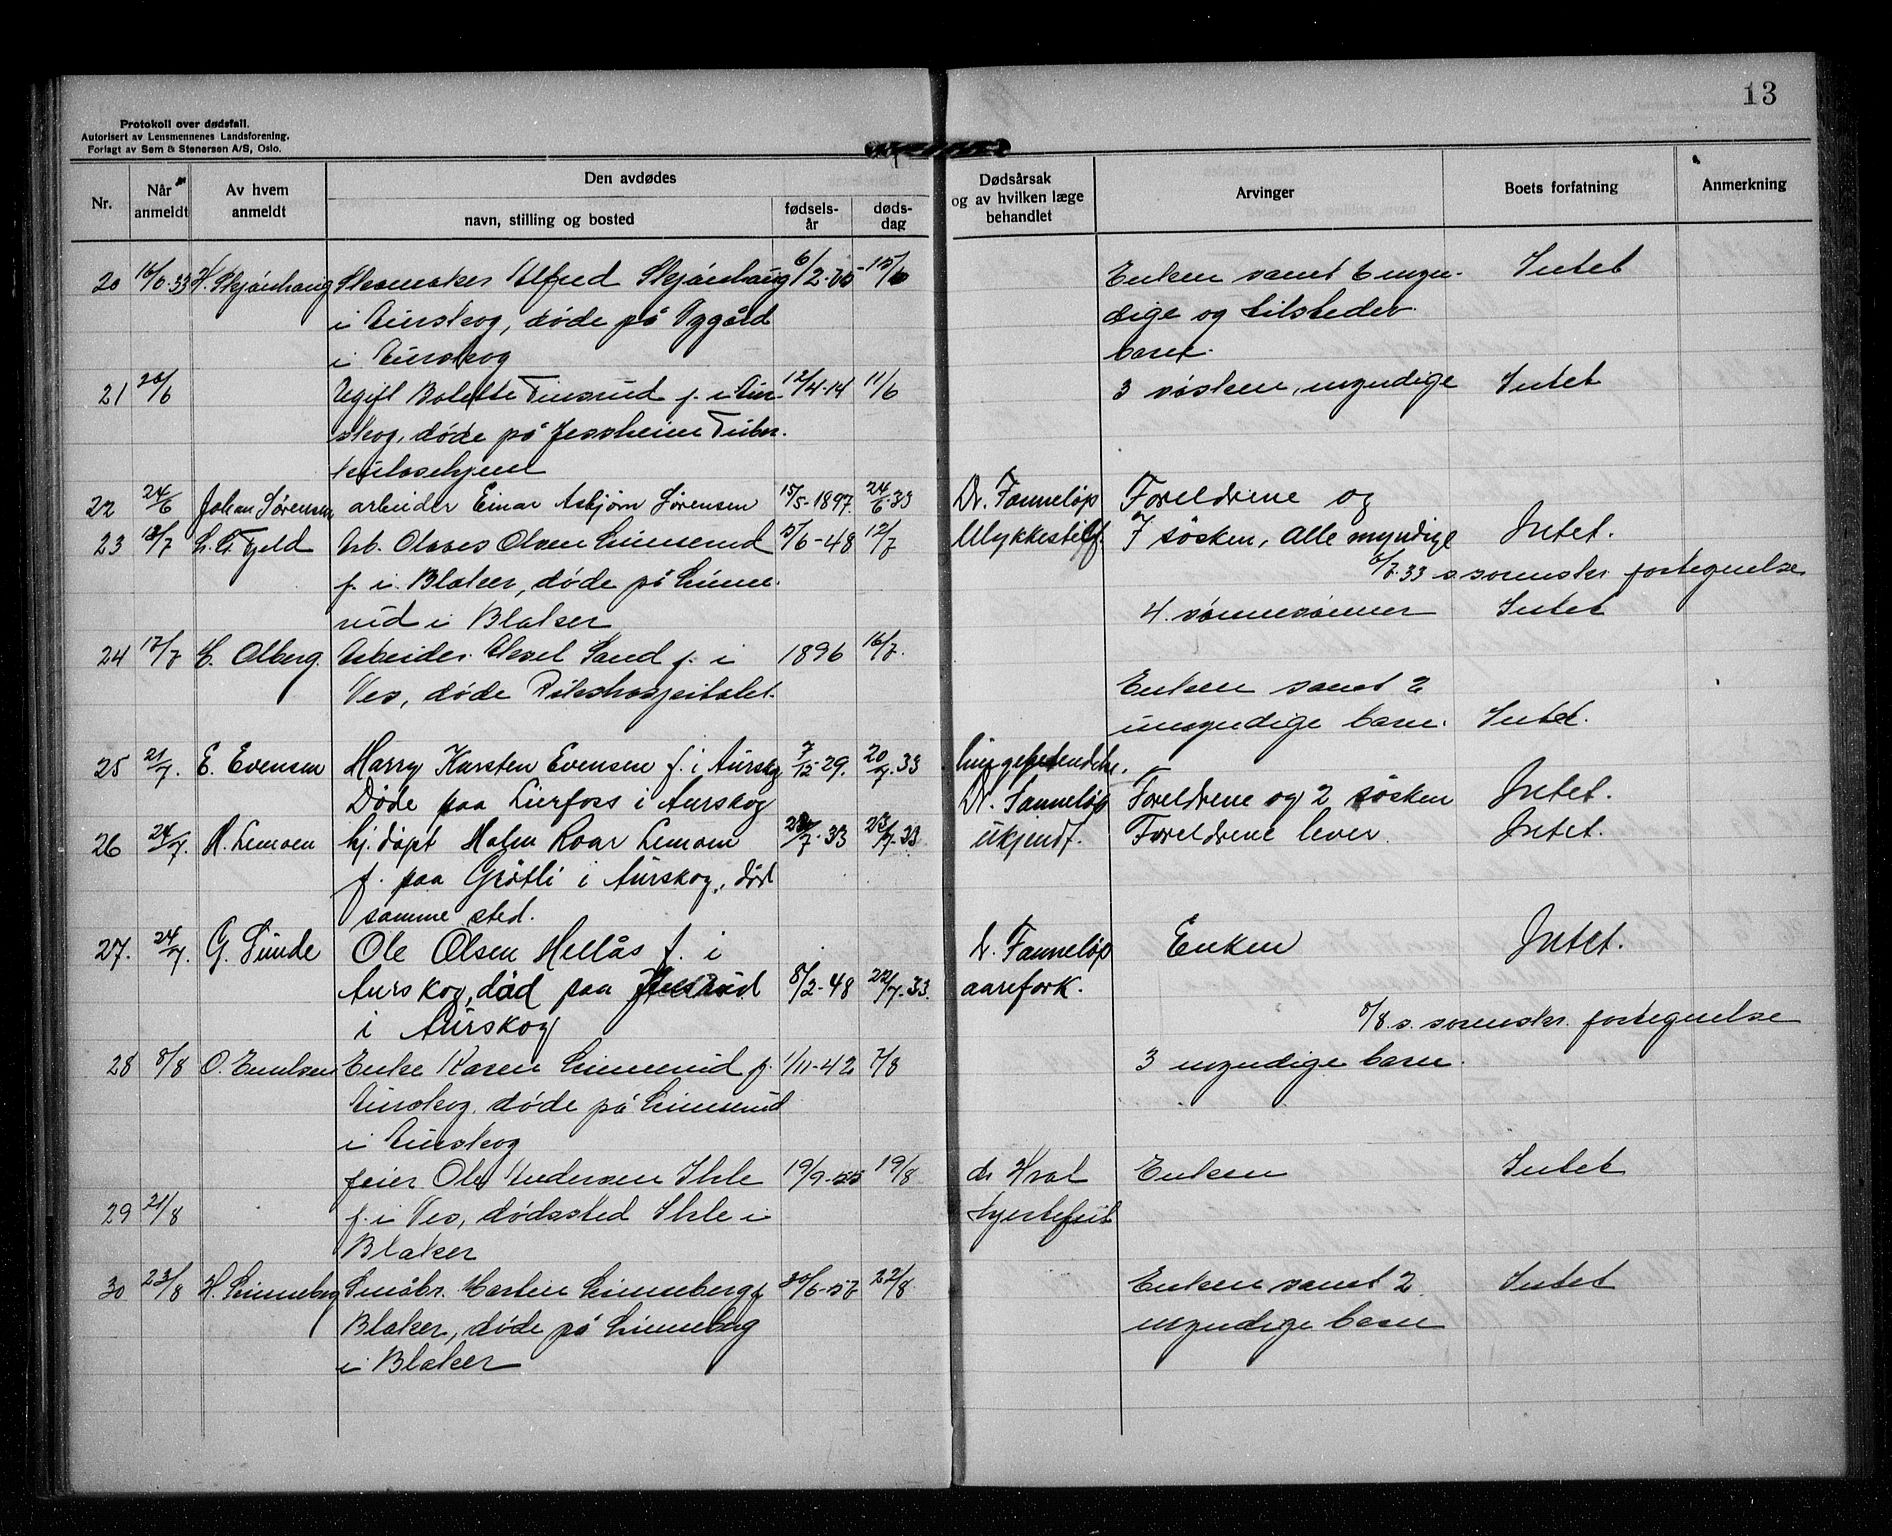 13
Protokoll over dødsfall.
Autorisert av Lensmennenes Landsforening.
Forlagt av Sem & Stenersen A/S, Oslo.
Nr.
Når anmeldt
Av hvem anmeldt
Den avdødes
navn, stilling og bosted
fødselsår
dødsdag
Dødsårsak og av hvilken læge behandlet
Arvinger
Boets forfatning
Anmerkning
20 16/6.33 H. Skjønhaug Skomaker Alfred Skjønhaug 6/2- 15/6 Enken samt 6 myn- Intet
i Aurskog, døde på dige og tilstedev.
i Aurskog barn.
21 20/6 Ugift Bolette Finsrud f. i Aur- 12/4-14 11/6 3 søsken, myndige Intet
skog, døde på Jessheim Tuber-
kulosehjem
22 24/6 Johan Sørensen arbeider Einar Asbjørn Sørensen 15/5-1897. 24/6 33 Dr. Fanneløp Foreldrene og
Ulykkestilf. 7 søsken, Alle myndige Intet.
23 /7 Arb. Olaves Olsen Linnerud /6-48 12/7
/7.33 s. svensk. fortegnelse
f. i Blaker, døde på Linne-
rud i Blaker 4 sønnesønner Intet
24 17/7 E. Olberg Arbeider Aksel Sand f. i 1896 16/7.
Nes, døde Rikshospitalet. Enken samt 2
umyndige barn. Intet.
25 21/7. E. Evensen Harry Karsten Evensen f. i Aurskog 7/12-29. 20/7.33 lungebetendelse,
Døde paa Lierfoss i Aurskog Dr. Fanneløp Foreldrene og 2 søsken Intet.
26 24/7. H. Lemoen hj. døpt Malen Roar Lemoen /7-33 23/7-33 ukjendt. Foreldrene lever. Intet.
f. paa Grøtli i Aurskog, død
samme sted.
27. 24/7. G. Sunde Ole Olsen Hellås f. i Dr. Fanneløp Enken Intet.
Aurskog, død paa 8/2-48 22/7.33. aarefork.
i Aurskog
8/8. s. svensk. fortegnelse
28 8/8 O. Emilsen Enke Karen Linnerud f. 1/11-42 7/8 3 myndige barn.
Aurskog, døde på Linnerud
i Aurskog
feier Ole Andersen Ihle 19/9-55 19/8 dr Hval Enken Intet
29 21/8 f. i Nes, dødssted Ihle i hjertefeil
Blaker
30 23/8 H. Linneberg Småbr. Martin Linneberg f. 22/8 Enken samt 2 Intet
Blaker, døde på Linneberg myndige barn
i Blaker